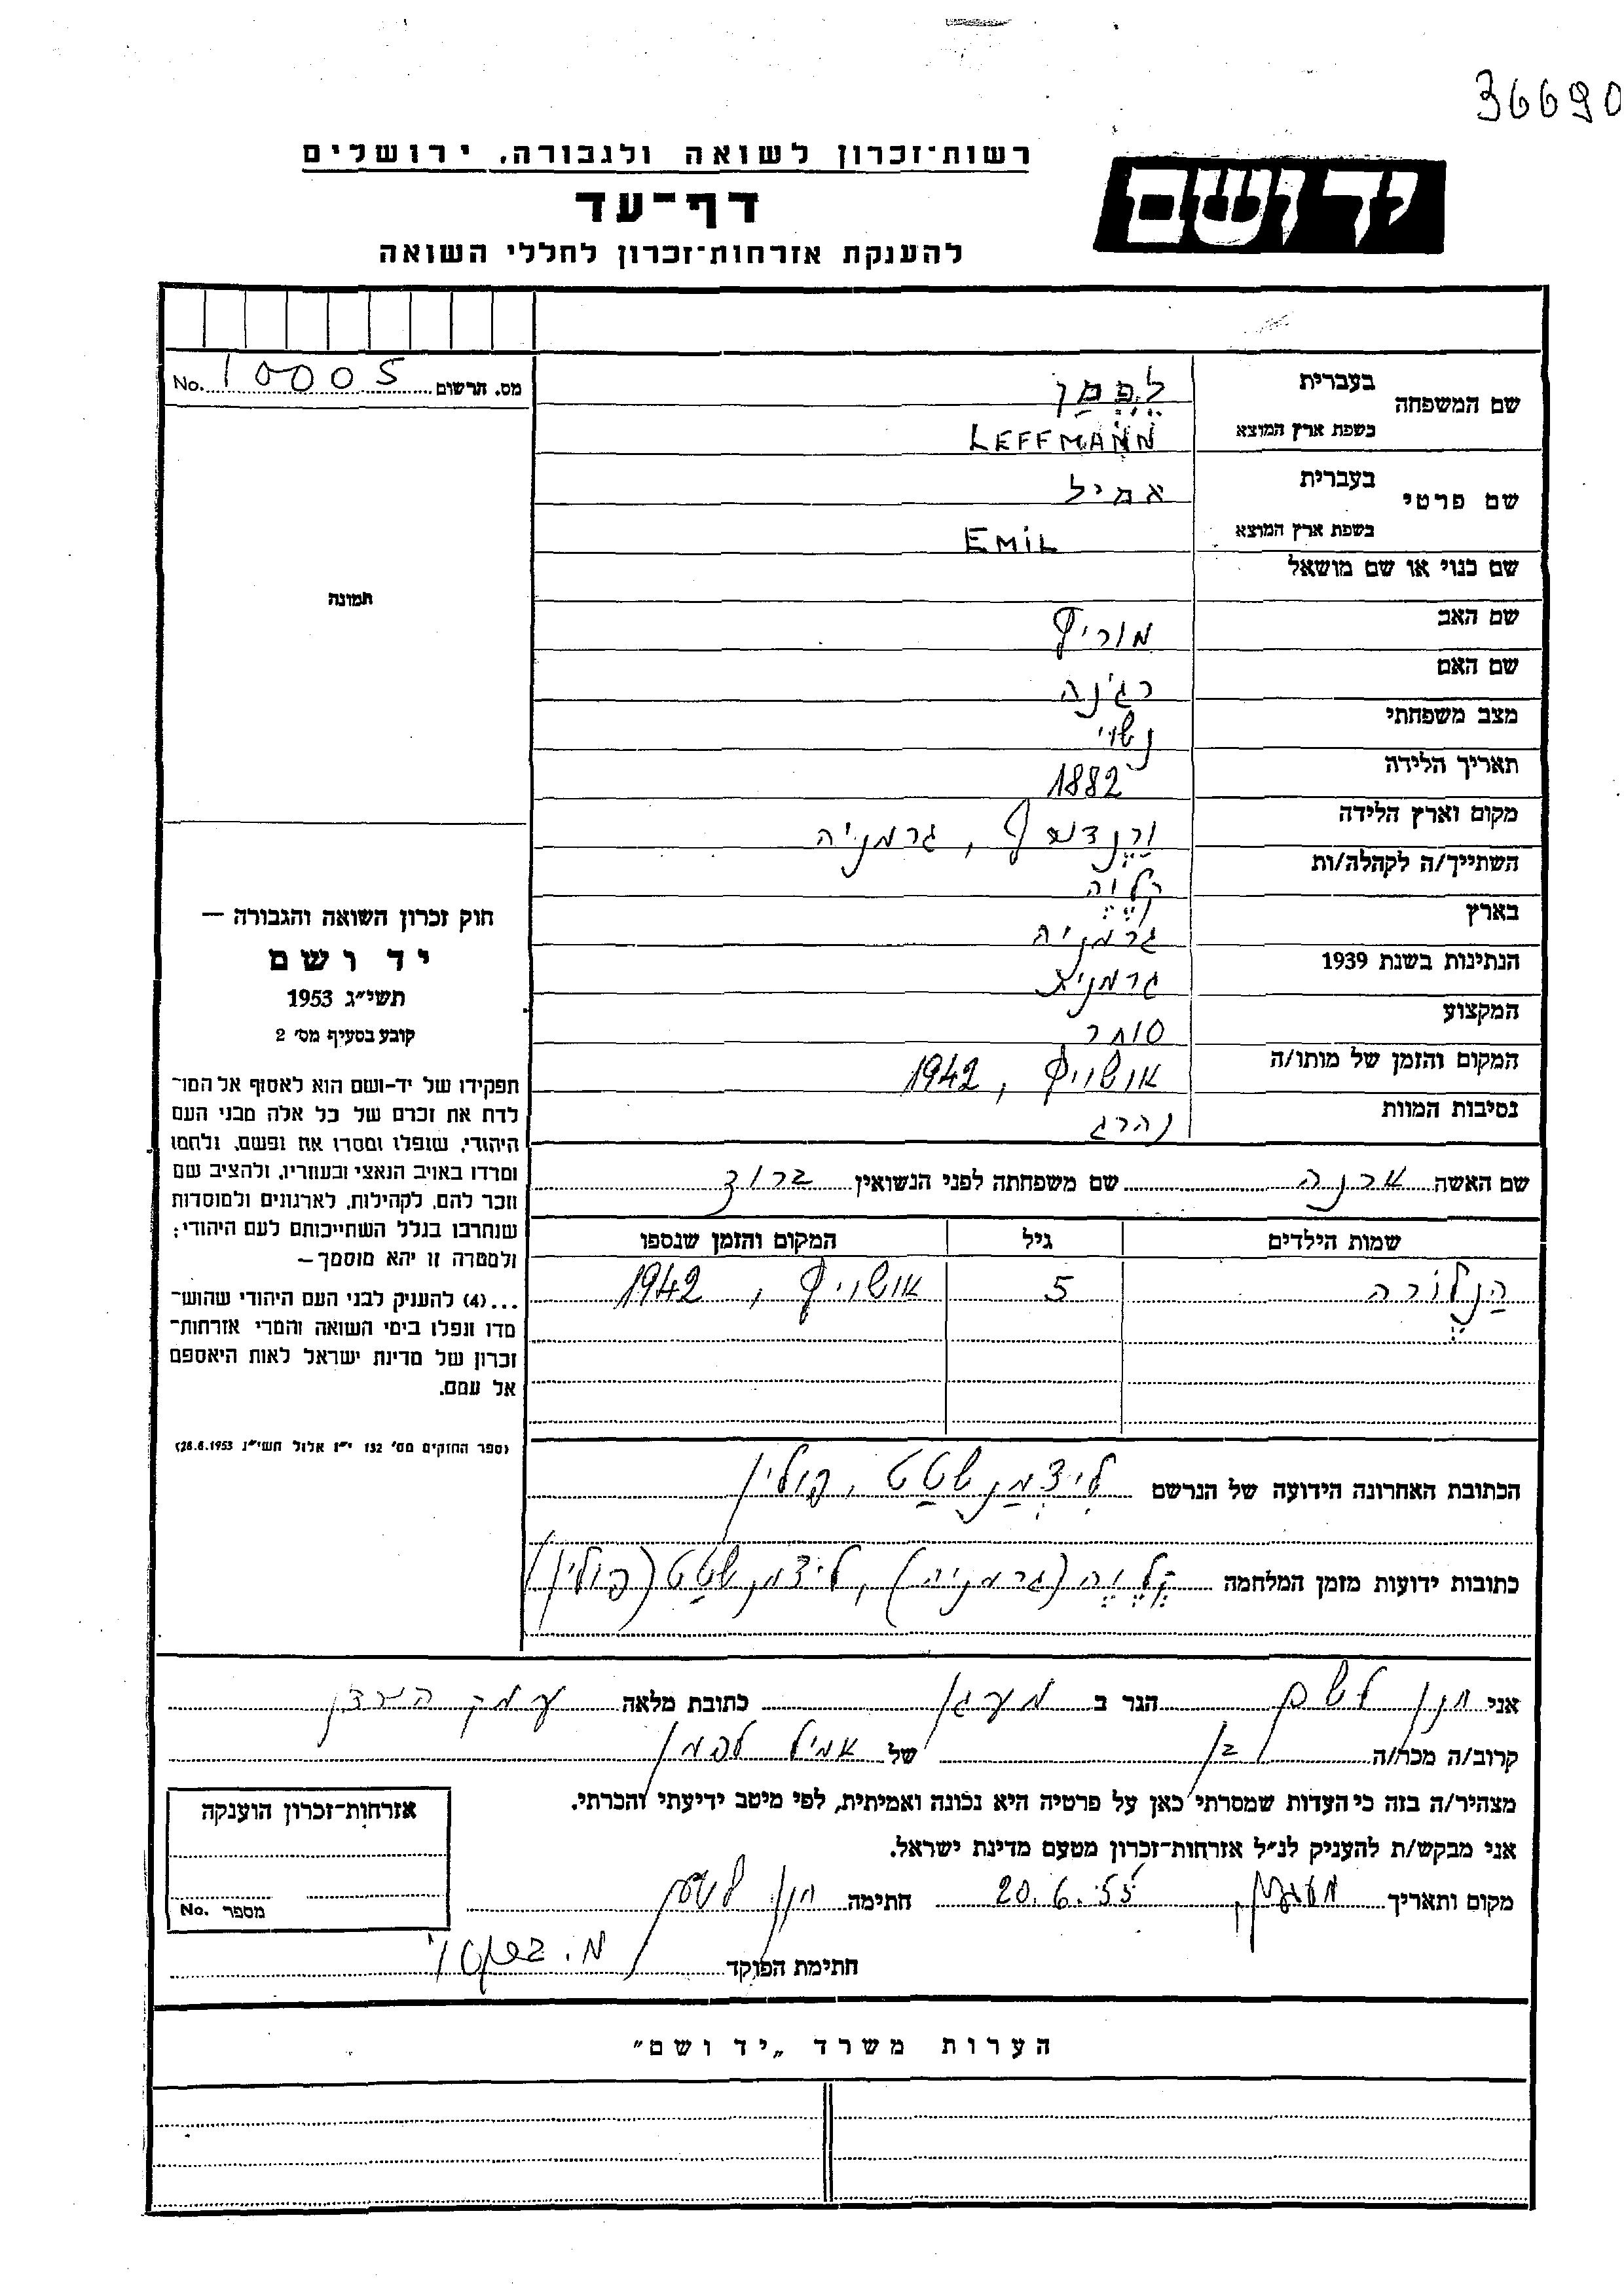 36690
ידושם
רשות-זכרון לשואה ולגבורה, ירושלים
דף-עד
להענקת אזרחות-זכרון לחללי השואה
מס. הרשום No. 10005
תמונה
שם המשפחה בעברית לֶפְמַן
בשפת ארץ המוצא LEFFMANN
שם פרטי בעברית אמיל
בשפת ארץ המוצא EMIL
שם כנוי או שם מושאל
שם האב מוריץ
שם האם רג'נה
מצב משפחתי נשוי
תאריך הלידה 1882
מקום וארץ הלידה גרמניה
השתייך/ה לקהלה/ות קלווה
בארץ גרמניה
הנתינות בשנת 1939 גרמנית
המקצוע סוחר
המקום והזמן של מותו/ה אושויץ, 1942
נסיבות המוות נהרג
שם האשה ארנה שם משפחתה לפני הנשואין ברוך
שמות הילדים גיל המקום והזמן שנספו
הַנֶלוֹרה 5 אושויץ, 1942
הכתובת האחרונה הידועה של הנרשם לִיצְמַנְשטַט, פולין
כתובות ידועות מזמן המלחמה קְלֶוֶה (גרמניה), ליצמנשטַט (פולין)
חוק זכרון השואה והגבורה —
יד ושם
תשי״ג 1953
קובע בסעיף מס׳ 2
תפקידו של יד-ושם הוא לאסוף אל המו־
לדת את זכרם של כל אלה מבני העם
היהודי, שנפלו ומסרו את נפשם, נלחמו
ומרדו באויב הנאצי ובעוזריו, ולהציב שם
וזכר להם, לקהילות, לארגונים ולמוסדות
שנחרבו בגלל השתייכותם לעם היהודי;
ולמטרה זו יהא מוסמך—
...(4) להעניק לבני העם היהודי שהוש־
מדו ונפלו בימי השואה והמרי אזרחות־
זכרון של מדינת ישראל לאות היאספם
אל עמם.
(ספר החוקים מס׳ 132 י״ז אלול תשי״ג 28.8.1953)
אני חנן לשם הגר ב מעגן כתובת מלאה עמק הירדן
קרוב/ה מכר/ה בן של אמיל לפמן
מצהיר/ה בזה כי העדות שמסרתי כאן על פרטיה היא נכונה ואמיתית, לפי מיטב ידיעתי והכרתי.
אני מבקש/ת להעניק לנ״ל אזרחות-זכרון מטעם מדינת ישראל.
מקום ותאריך מעגן 20.6.55 חתימה חנן לשם
חתימת הפוקד
אזרחות-זכרון הוענקה
מספר No.
הערות משרד „יד ושם״